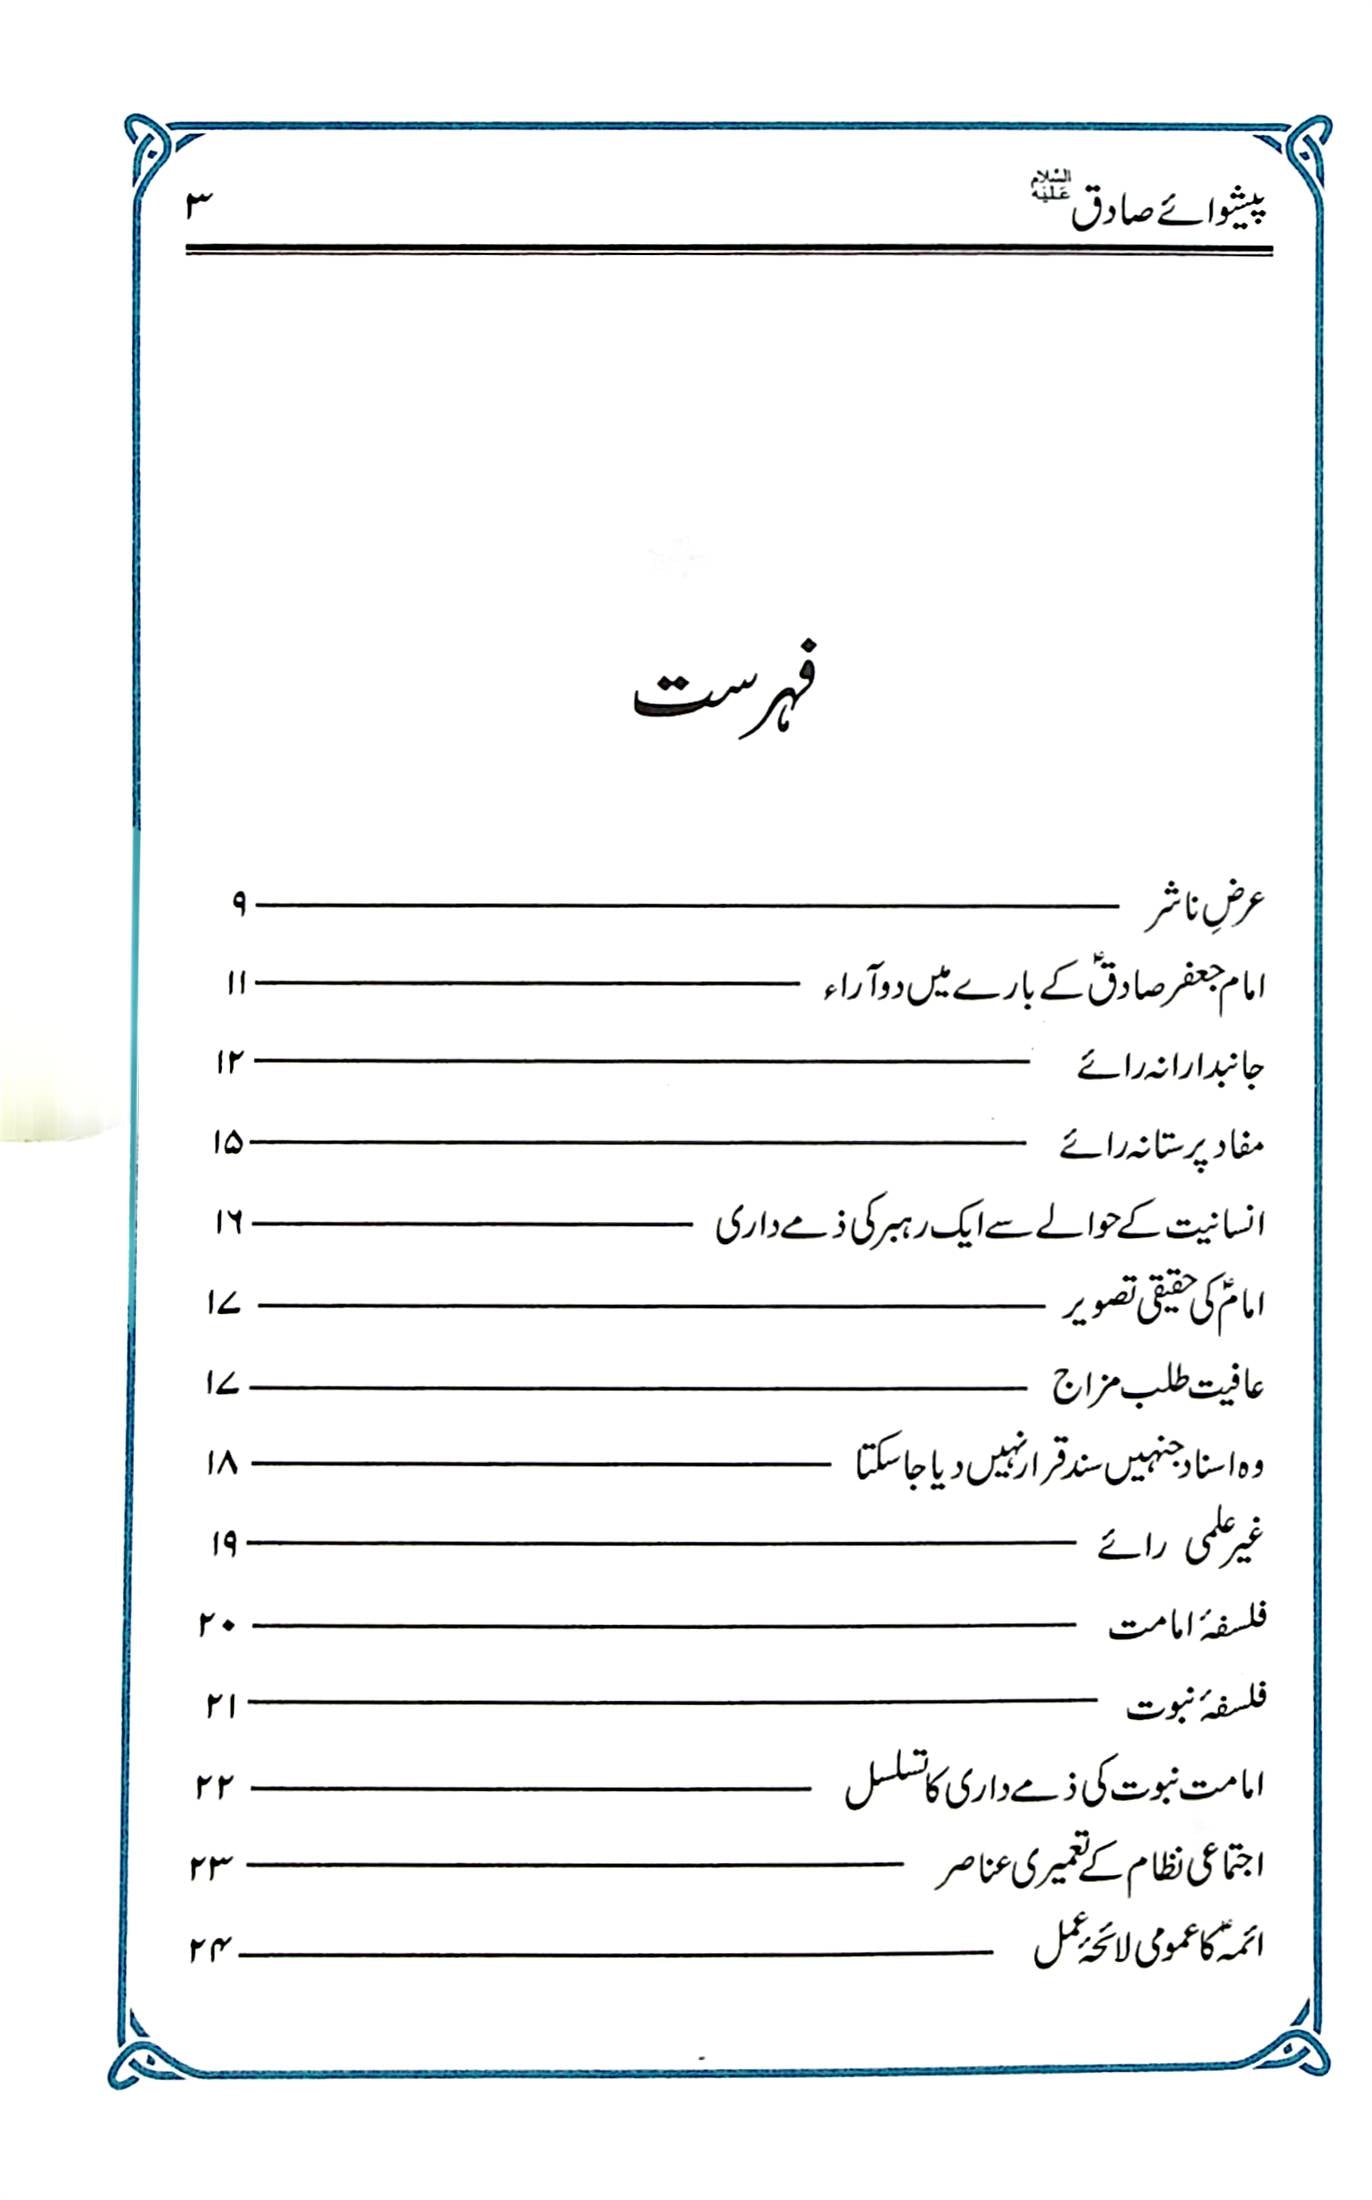 پیشوائے صادق علیہ السلام ۳
فہرست
عرضِ ناشر ۹
امام جعفر صادقؑ کے بارے میں دو آراء ۱۱
جانبدارانہ رائے ۱۲
مفاد پرستانہ رائے ۱۵
انسانیت کے حوالے سے ایک رہبر کی ذمے داری ۱۶
امامؑ کی حقیقی تصویر ۱۷
عافیت طلب مزاج ۱۷
وہ اسناد جنہیں سند قرار نہیں دیا جا سکتا ۱۸
غیر علمی رائے ۱۹
فلسفۂ امامت ۲۰
فلسفۂ نبوت ۲۱
امامت نبوت کی ذمے داری کا تسلسل ۲۲
اجتماعی نظام کے تعمیری عناصر ۲۳
ائمہؑ کا عمومی لائحۂ عمل ۲۴